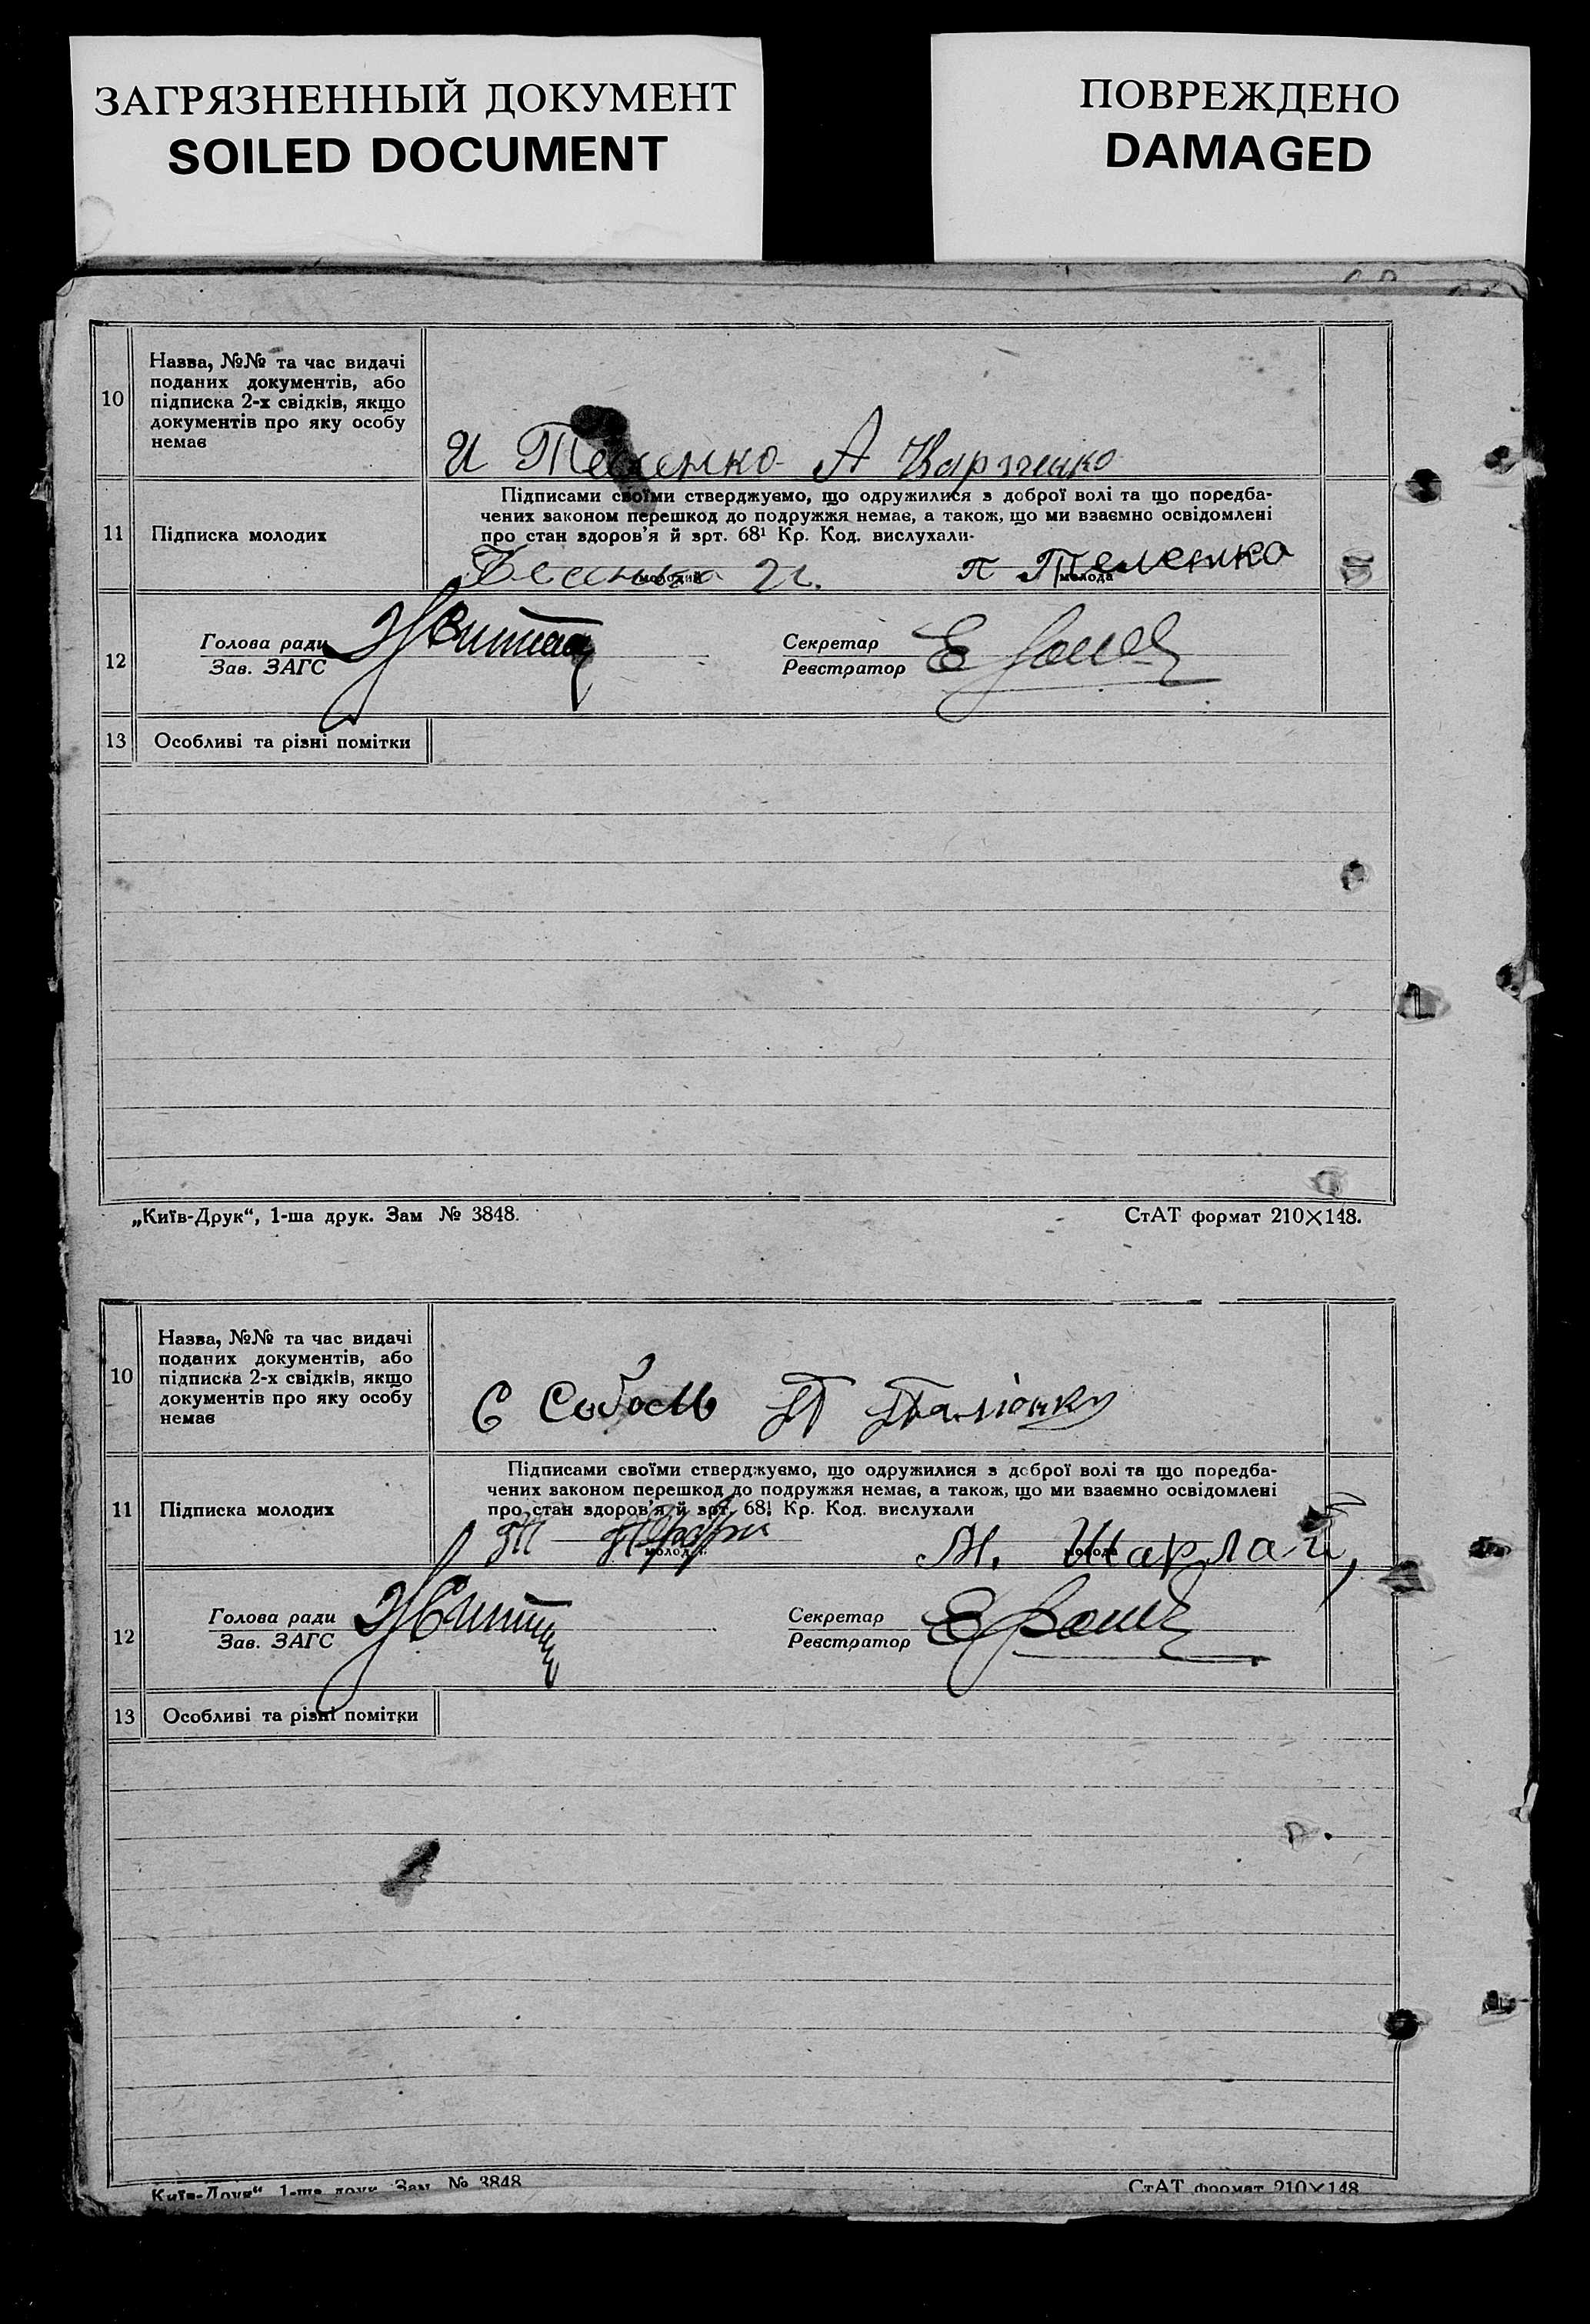 ЗАГРЯЗНЕННЫЙ ДОКУМЕНТ
SOILED DOCUMENT
ПОВРЕЖДЕНО
DAMAGED
10
Назва, №№ та час видачі
поданих документів, або
підписка 2-х свідків, якщо
документів про яку особу
немає
И А Харченко
11
Підписка молодих
Підписами своїми стверджуємо, що одружилися з доброї волі та що поредба-
чених законом перешкод до подружжя немає, а також, що ми взаємно освідомлені
про стан здоров'я й арт. 68¹ Кр. Код. вислухали.
молодий
п Теленко
молода
12
Голова ради
Зав. ЗАГС
Секретар
Реєстратор
13
Особливі та різні помітки
„Київ-Друк“, 1-ша друк. Зам № 3848.
СтАТ формат 210×148.
10
Назва, №№ та час видачі
поданих документів, або
підписка 2-х свідків, якщо
документів про яку особу
немає
С Соболь П
11
Підписка молодих
Підписами своїми стверджуємо, що одружилися з доброї волі та що поредба-
чених законом перешкод до подружжя немає, а також, що ми взаємно освідомлені
про стан здоров'я й арт. 68¹ Кр. Код. вислухали
М. Шарлай
молода
12
Голова ради
Зав. ЗАГС
Секретар
Реєстратор
13
Особливі та різні помітки
Київ-Друк“ 1-ша друк Зам № 3848
СтАТ формат 210×148